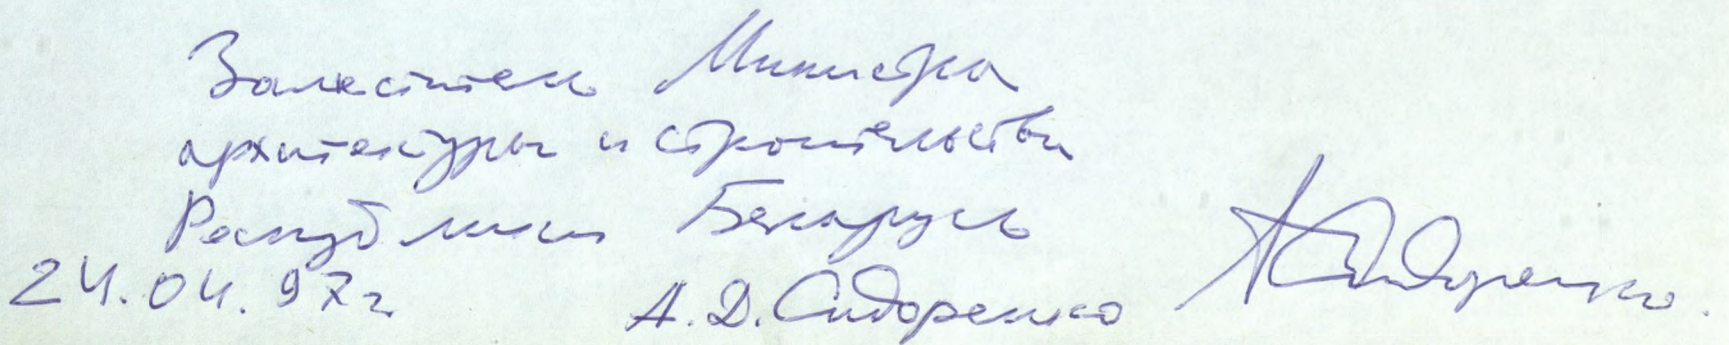 Заместитель Министра
архитектуры и строительства
Республики Беларусь
24.04.97г
А.Д. Сидоренко